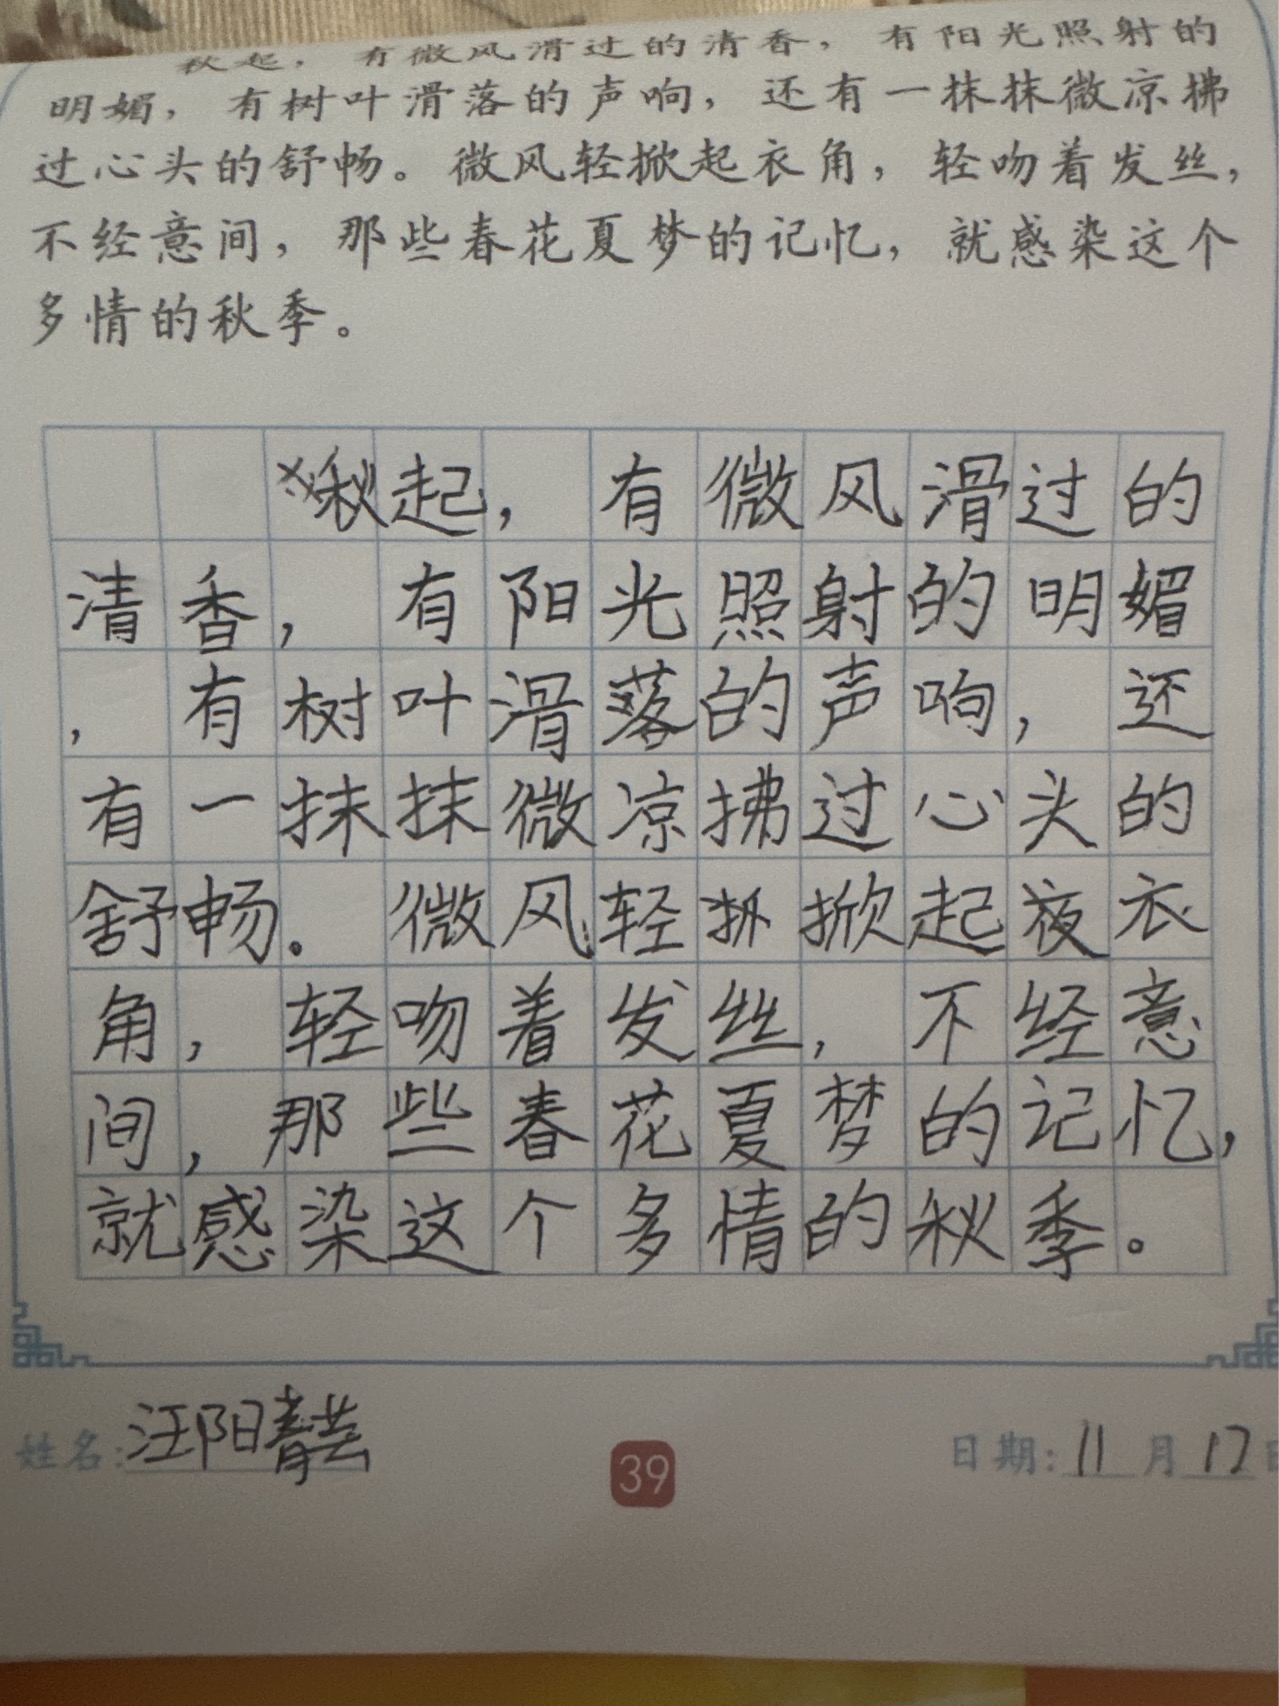 秋起，有微风滑过的清香，有阳光照射的
明媚，有树叶滑落的声响，还有一抹抹微凉拂
过心头的舒畅。微风轻掀起衣角，轻吻着发丝，
不经意间，那些春花夏梦的记忆，就感染这个
多情的秋季。
秋起，有微风滑过的
清香，有阳光照射的明媚
，有树叶滑落的声响，还
有一抹抹微凉拂过心头的
舒畅。微风轻掀起夜衣
角，轻吻着发丝，不经意
间，那些春花夏梦的记忆，
就感染这个多情的秋季。
姓名：汪阳 39 日期：11月17日